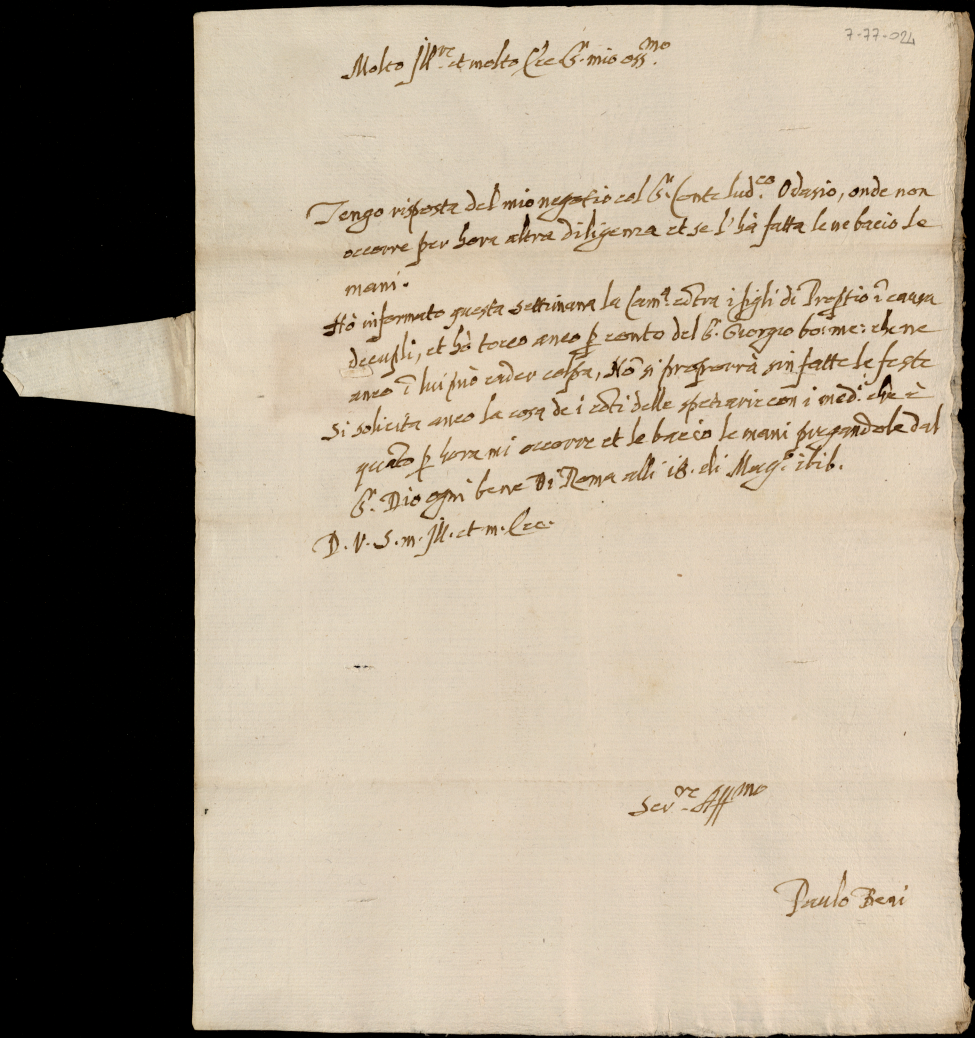 7-77-024
Molto Ill.re et molto Ecc.te S.r mio oss.mo
Tengo risposta del mio negotio col S.r Conte Lud.co Odasio, onde non
occorre per hora altra diligenza et se l'hà fatta le ne bacio le
mani.
Hò informato questa settimana la Cam.a cōtra i figli di ī causa
decupli, et hò tocco anco p conto del S.r Giorgio bo: me: che ne
anco ī lui può cader colpa, Nō si proporrà sin fatte le feste
Si solicita anco la cosa de i cōti delle spetiarie con i med.i che è
quāto p hora mi occorre et le bacio le mani pregandole dal
S.r Dio ogni bene Di Roma alli 18. di Mag.o 1616.
D. V. S. m. Ill. et m. Ecc.
Ser.re Aff.mo
Paulo Beni